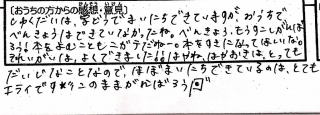 [おうちの方からの感想・意見]
しゅくだいは、学どうでまいにちできていますが、おうちで
べんきょうはできていなかったね。べんきょう、もうすこしがんば
ろう!本をよむこともニガテだねー。本をすきになってほしいな。
それいがいは、よくできました!!はやね、はやおきは、とっても
だいじなことなので、ほぼまいにちできているのは、とても
エライです。このままがんばろう